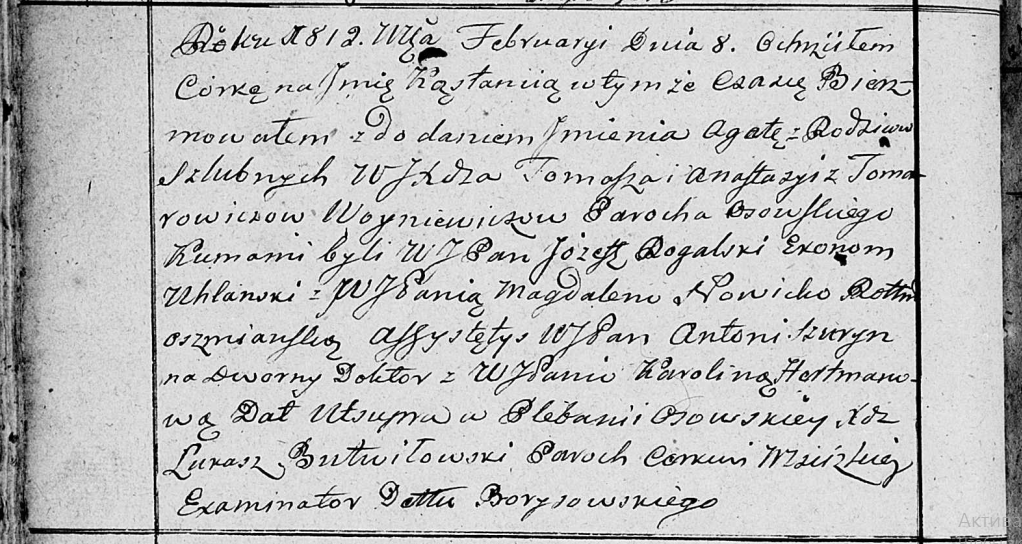 Roku 1812. Msca Februaryi Dnia 8. Ochrzciłem
Corkę na Jmię Kąstancią w tym że Czasie Bierz-
mowałem z do daniem Jmienia Agatę z Rodziców
Szlubnych WJXdza Tomasza i Anastazyi z Toma-
rowiczow Woyniewiczow Parocha Osowskiego
Kumami byli WJPan Józef Rogalski Ekonom
Uhlanski z WJPanią Magdaleno Nowicko Rottm
oszmianską Assystętys WJPan Antoni Szuryn
na Dworny Doktor z WJPanio Karoliną Hertmano-
wą Dat Utsupra w Plebanii Osowskiey Xdz
Łukasz Butwiłowski Paroch Cerkwi
Examinator Dettu Borysowskiego
Актив